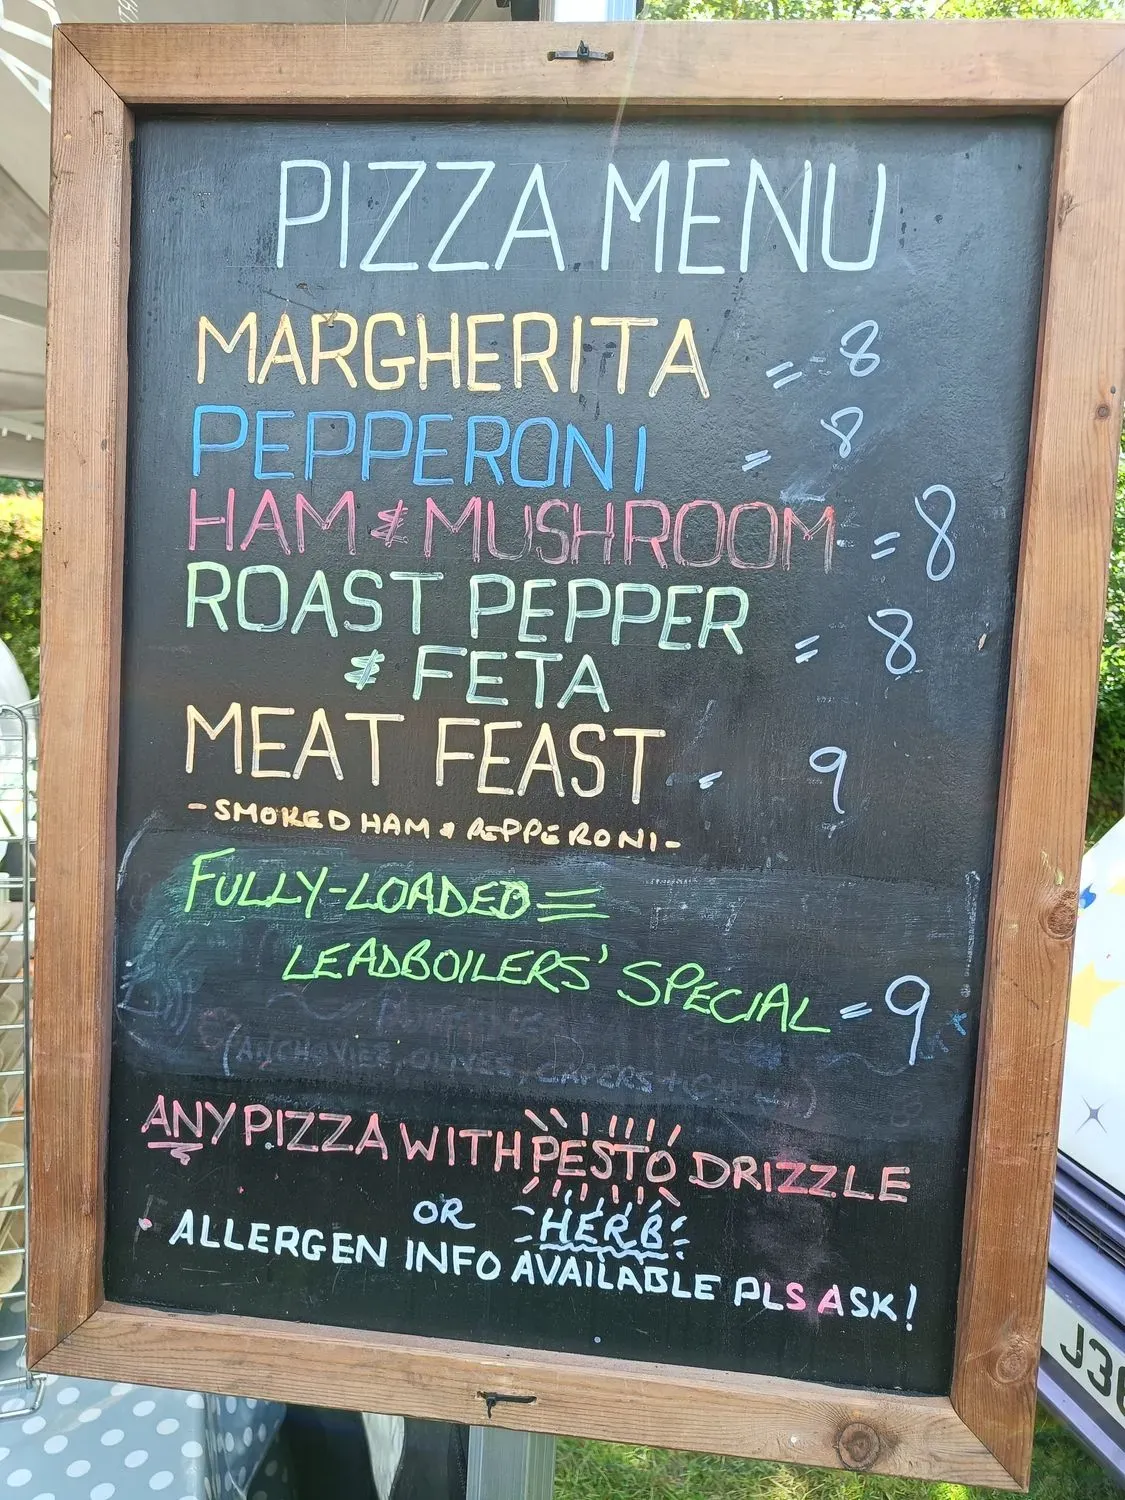 PIZZA MENU
MARGHERITA = 8
PEPPERONI = 8
HAM & MUSHROOM = 8
ROAST PEPPER
& FETA = 8
MEAT FEAST - 9
-SMOKED HAM & PEPPERONI-
FULLY-LOADED =
LEADBOILERS' SPECIAL = 9
(ANCHOVIES, OLIVES, CAPERS
ANY PIZZA WITH PESTO DRIZZLE
OR HERB
• ALLERGEN INFO AVAILABLE PLS ASK!
J36